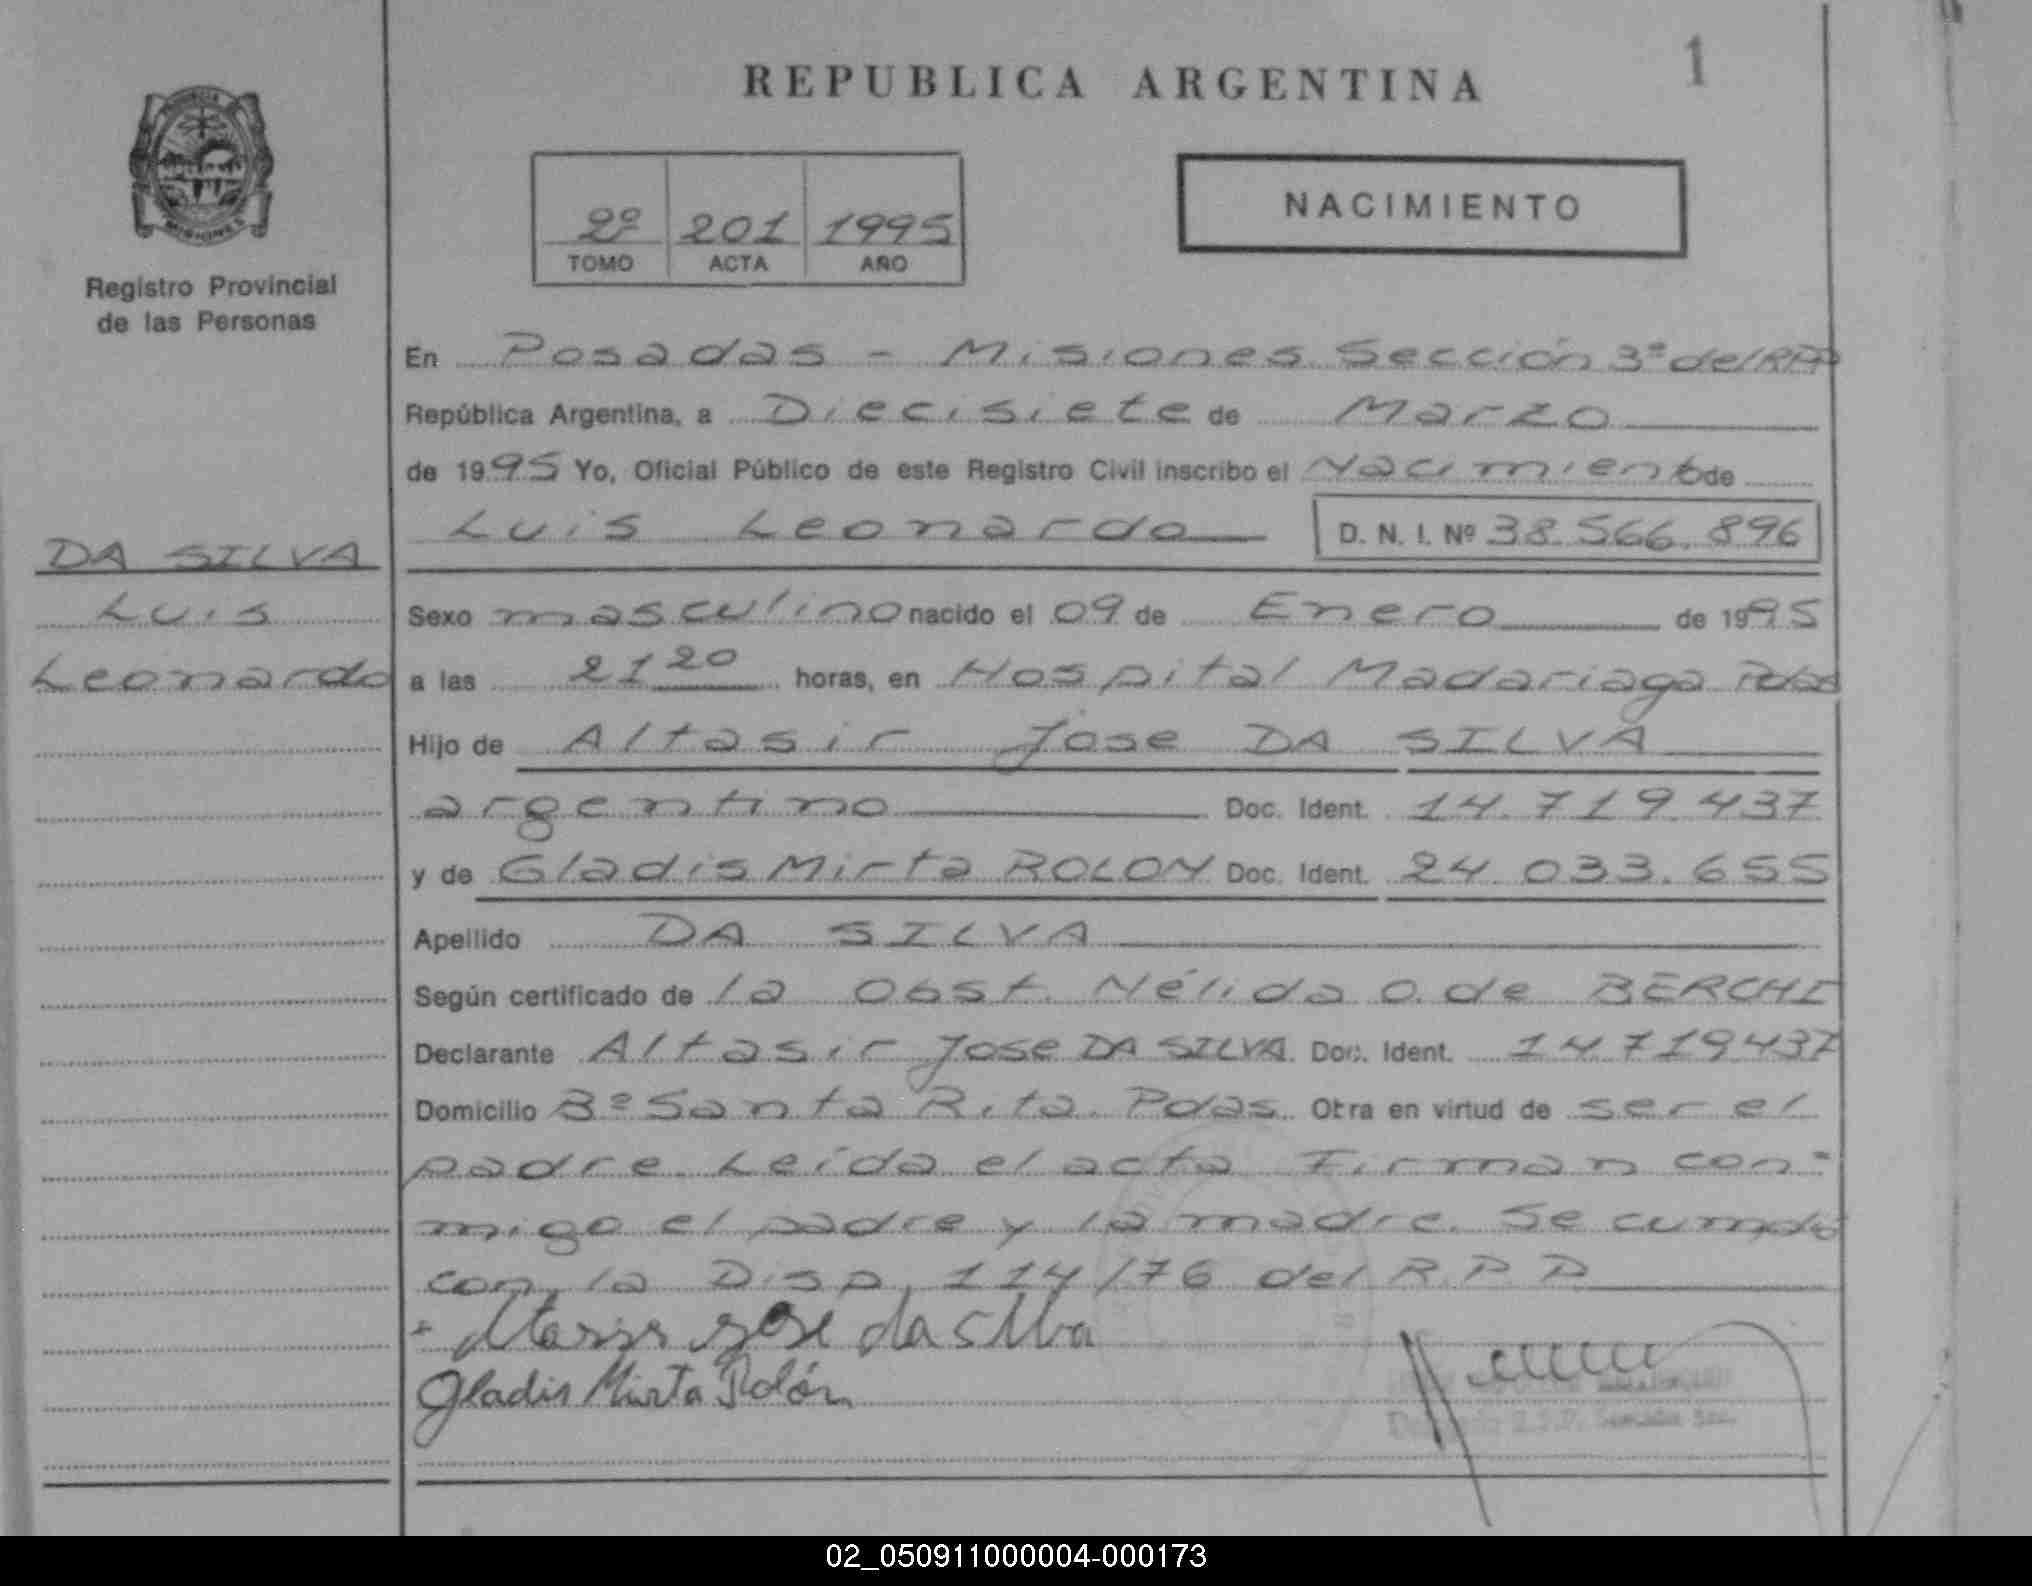 REPUBLICA ARGENTINA
1
2º 201 1995
TOMO ACTA AÑO
NACIMIENTO
MISIONES
Registro Provincial
de las Personas
DA SILVA
Luis
Leonardo
En Posadas - Misiones Sección 3ª del RPP
República Argentina, a Diecisiete de Marzo
de 1995 Yo, Oficial Público de este Registro Civil inscribo el Nacimiento de
Luis Leonardo D. N. I. Nº 38.566.896
Sexo masculino nacido el 09 de Enero de 1995
a las 21 20 horas, en Hospital Madariaga
Hijo de Altasir Jose DA SILVA
argentino Doc. Ident. 14.719.437
y de Gladis Mirta ROLON Doc. Ident. 24.033.655
Apellido DA SILVA
Según certificado de la Obst. Nélida O. de BERCHI
Declarante Altasir Jose DA SILVA Doc. Ident. 14.719437
Domicilio Bº Santa Rita. Pdas. Otra en virtud de ser el
padre. Leída el acta Firman con=
migo el padre y la madre. Se cumple
con la Disp. 114/76 del R.P.P
Altasir Jose da silva
Gladis Mirta Rolón
02_050911000004-000173